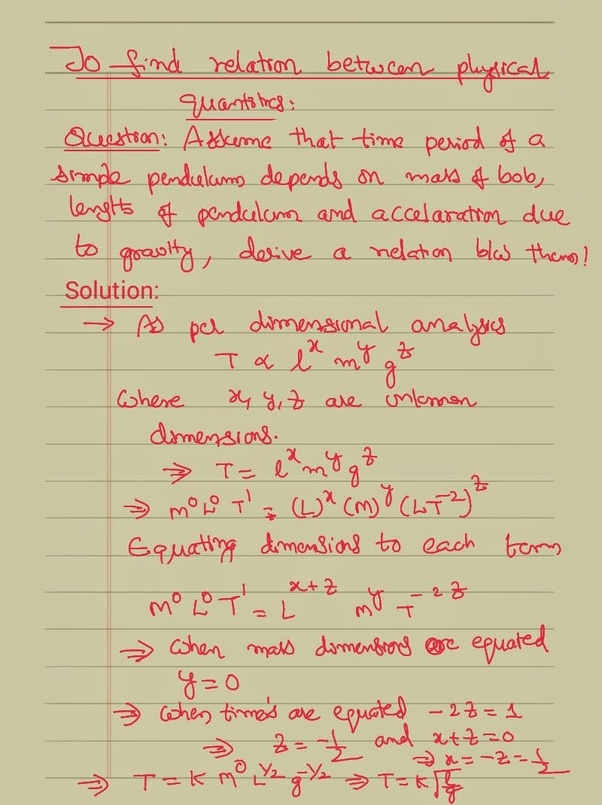 To find relation between physical
quantities:
Question: Assume that time period of a
simple pendulum depends on mass of bob,
length of pendulum and accelaration due
to gravity, derive a relation b/w them!
Solution:
→ As per dimensional analysis
T ∝ l^x m^y g^z
Where x, y, z are unknown
dimensions.
⇒ T = l^x m^y g^z
⇒ M^0 L^0 T^1 = (L)^x (M)^y (LT^-2)^z
Equating dimensions to each term
M^0 L^0 T^1 = L^x+z M^y T^-2z
⇒ When mass dimensions are equated
y = 0
⇒ When time's are equated -2z = 1
⇒ z = -1/2 and x+z = 0
⇒ x = -z = 1/2
⇒ T = K M^0 L^1/2 g^-1/2 ⇒ T = K √(l/g)